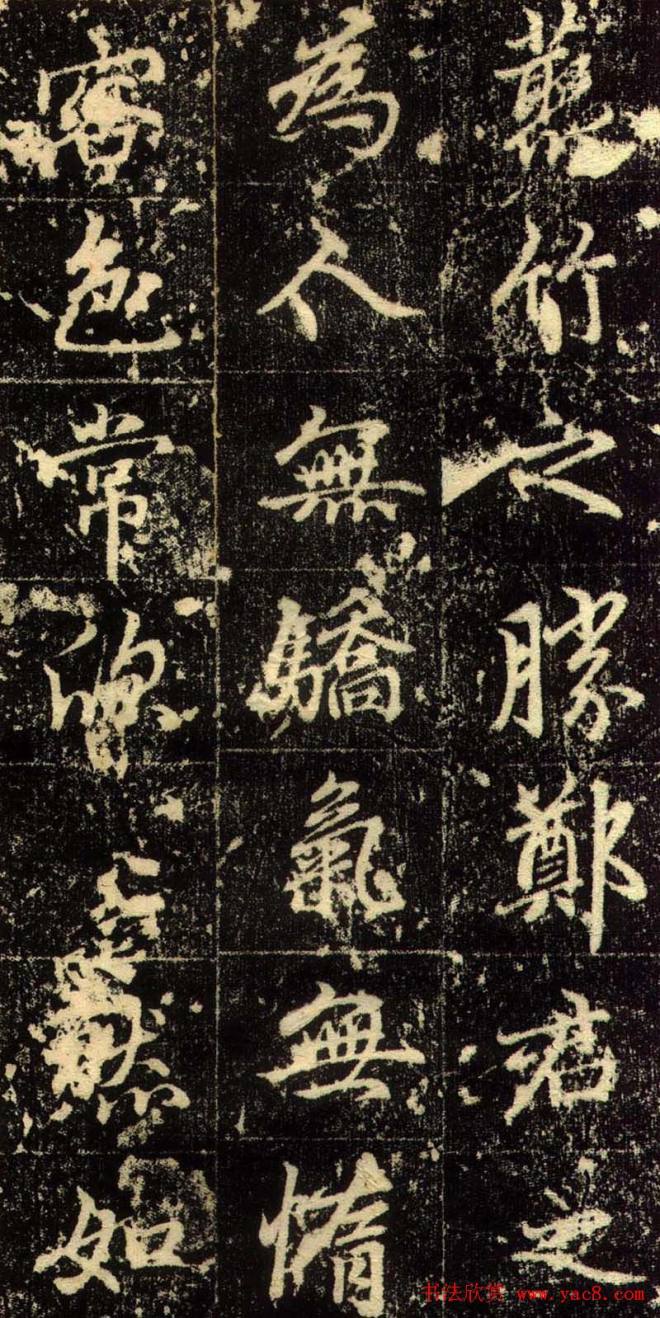 竹之勝鄭君之
為人無驕氣無惰
容色常然如
书法欣赏 www.yac8.com